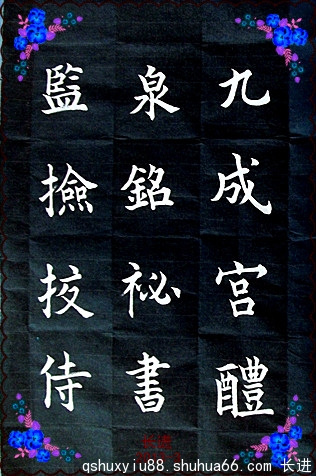 九成宮醴
泉銘祕書
監撿挍侍
长进
qshuxyiu88.shuhua66.com 长进